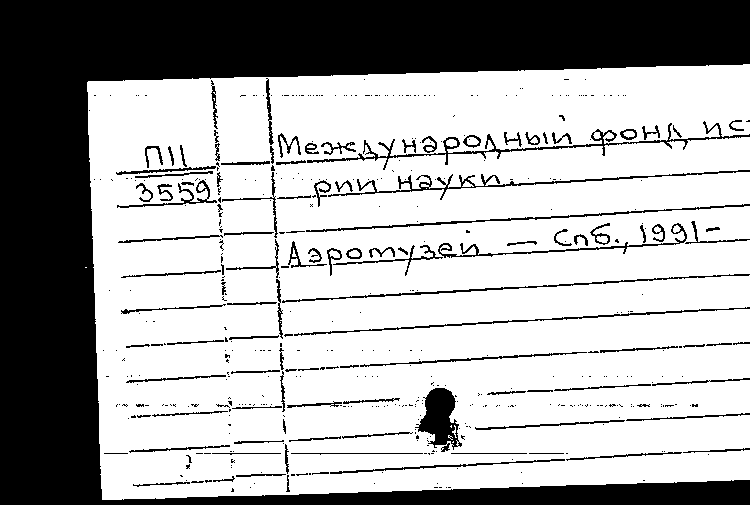 П11
3559
Международный фонд ист
рии науки.
Аэромузей. — Спб., 1991-